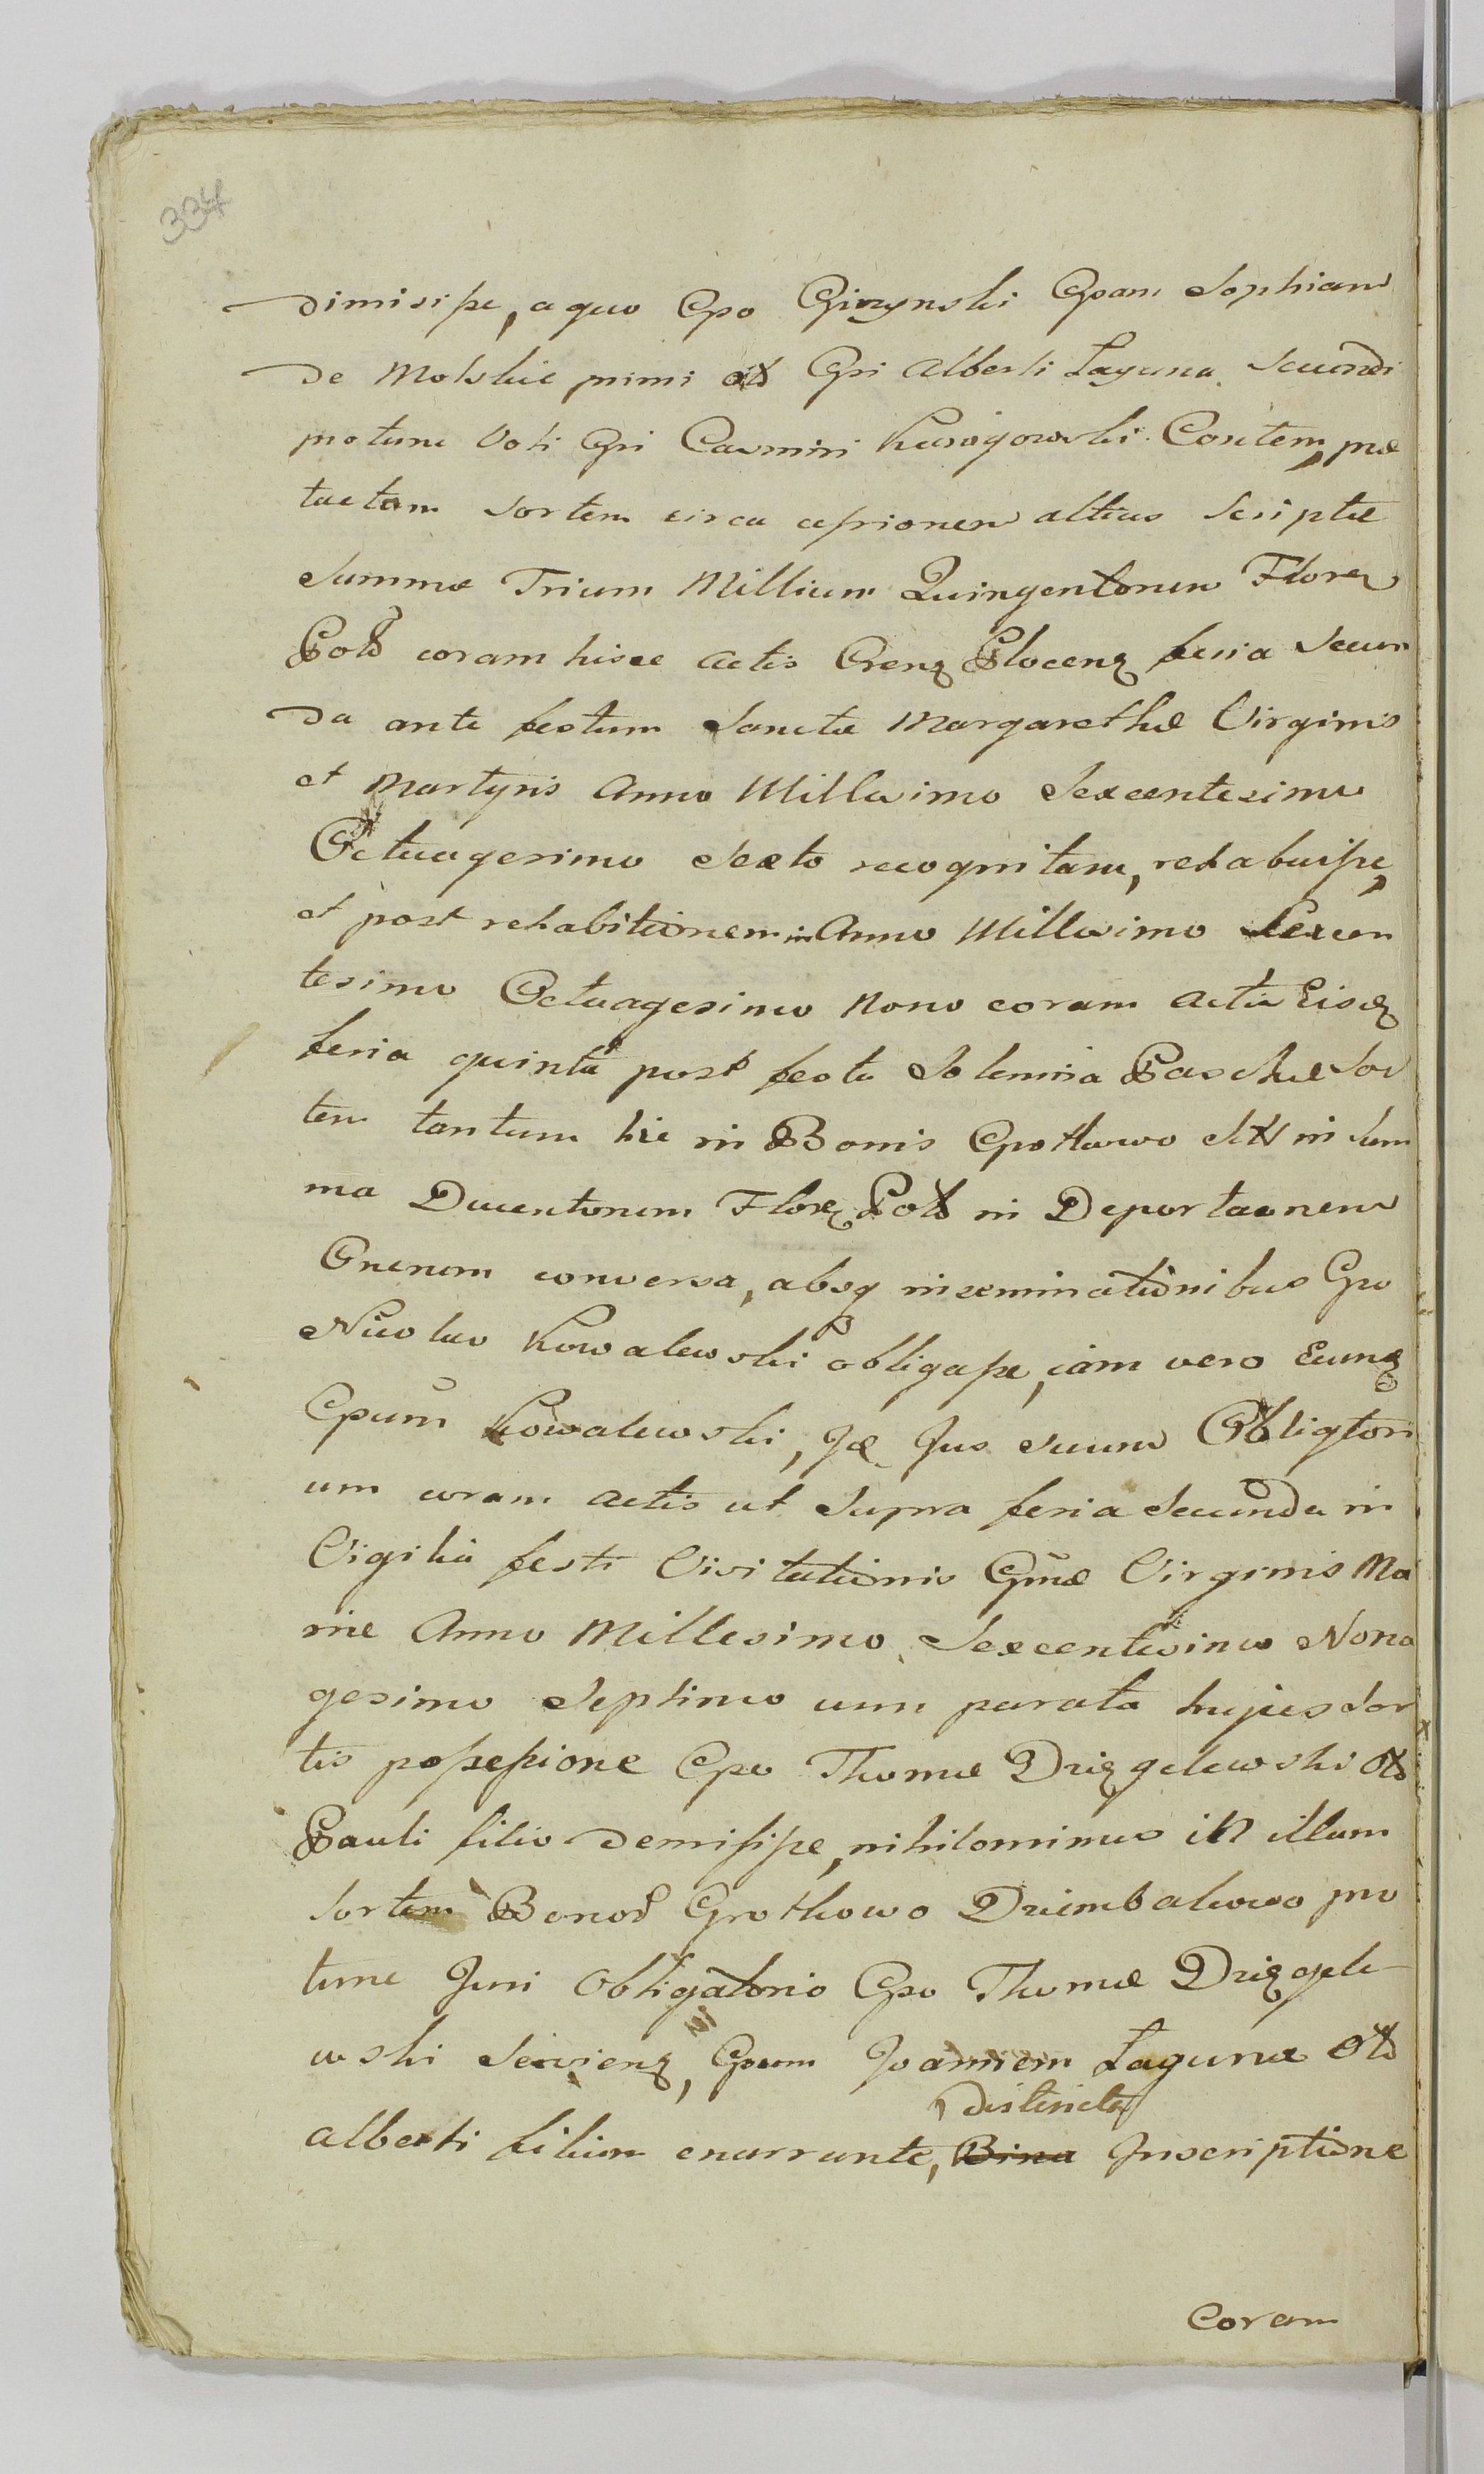 334
dimisisse, a quo Gpo Gizynski Gpam Sophiam
de Molskie primi olt Gpi Alberti Laguna Secundi
protunc Voti Gpi Casimiri Consortem, præ
tactam sortem circa cessionem altius scriptæ
Summæ Trium Millium Quingentorum Floren
Polt coram hisce Actis Crenz Plocenz feria Secun
da ante festum Sanctæ Margarethæ Virginis
et Martyris Anno Millesimo Sexcentesimo
Octuagesimo Sexto recognitam, rehabuisse,
et post rehabitionem in Anno Millesimo Sexcen
tesimo Octuagesimo Nono coram Actis Eisdz
feria quinta post festa Solennia Paschæ Sor
tem tantum hic in Bonis Grotkowo Sitt in Sum
ma Ducentorum Floren Polt in Deportaonem
conversa, absq inseminationibus Gpo
Nicolao Kowalewski obligasse, iam vero Eundz
Gpum Kowalewski, Id Jus suum Obligtori
um coram Actis ut Supra feria Secunda in
Vigilia festi Visitationis Gmæ Virginis Ma
riæ Anno Millesimo Sexcentesimo Nona
gesimo Septimo cum parata hujus Sor
tis possessione Gpo Thomæ Drizgelewski Olt
Pauli filio demisisse, nihilominus in illam
sortem Bonor Grotkowo Dziembakowo pro
tunc Juri Obligatorio Gpo Thomæ Drizgele
wski Servienz, Gpum Joannem Laguna Olt
distincta
Alberti filium enarrante, Bina Inscriptione
Coram